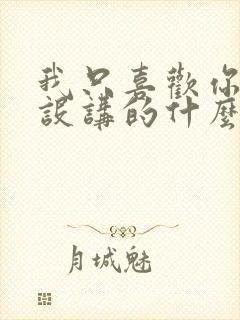 我只喜歡你
設講的什麼
月城魅